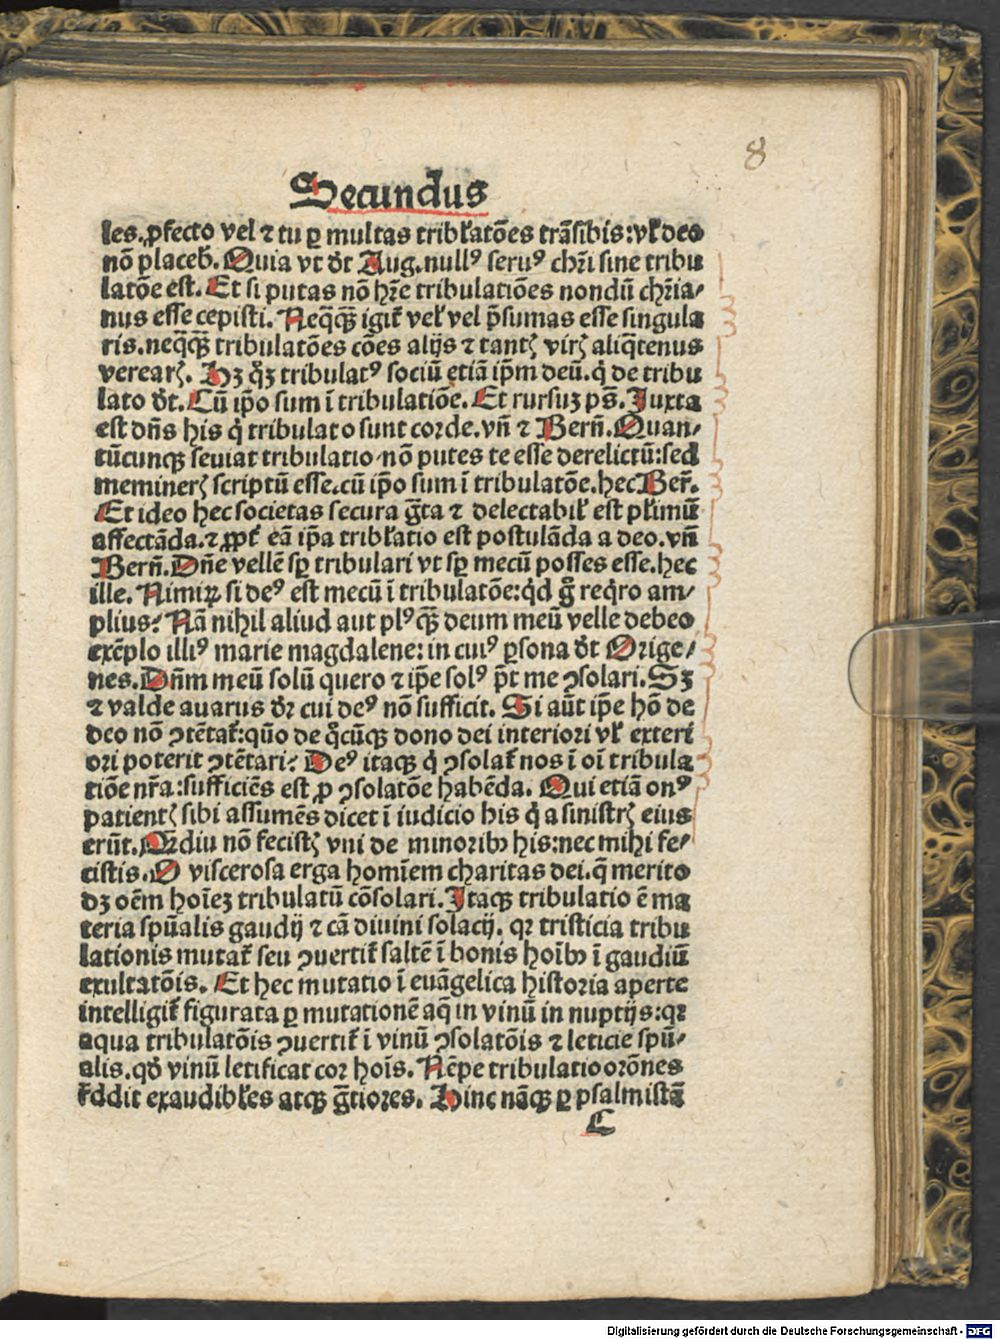 8
Secundus
les. ꝓfecto vel ⁊ tu ꝑ multas tribl'atōes trāsibis: vl' deo
nō placeb̄. Quia vt dr̄t Aug. nullꝰ seruꝰ chr̄i sine tribu
latōe est. Et si putas nō hr̄e tribulatiōes nondū chr̄ia⸗
nus esse cepisti. Neq̄qꝫ igit᷑ vel' vel p̄sumas esse singula
ris. neq̄qꝫ tribulatōes cōes alijs ⁊ tantꝭ virꝭ aliq̄tenus
verearꝭ. Hꝫ q̊ꝫ tribulatꝰ sociū etiā ip̄m deū. q̇ de tribu
lato dr̄t. Cū ip̄o sum ī tribulatiōe. Et rursuꝫ ps̄. Iuxta
est dn̄s his q̇ tribulato sunt corde. vn̄ ⁊ Bern̄. Quan⸗
tūcunqꝫ seuiat tribulatio nō putes te esse derelictū: sed
meminerꝭ scriptū esse. cū ip̄o sum ī tribulatōe. hec Ber̄.
Et ideo hec societas secura g̃ta ⁊ delectabil' est pl'imū
affectāda. ⁊ ꝓpt᷑ eā ip̄a tribl'atio est postulāda a deo. vn̄
Bern̄. Dn̄e vellē sꝑ tribulari vt sꝑ mecū posses esse. hec
ille. Nimiꝝ si deꝰ est mecū ī tribulatōe: qd̄ g̊ req̇ro am⸗
plius? Nā nihil aliud aut plꝰqꝫ̄ deum meū velle debeo
exēplo illiꝰ marie magdalene: in cuiꝰ ꝑsona dr̄t Orige⸗
nes. Dn̄m meū solū quero ⁊ ip̄e solꝰ p̄t me ꝯsolari. Sꝫ
⁊ valde auarus dr̄ cui deꝰ nō sufficit. Si aūt ip̄e hō de
deo nō ꝯtētat᷑: quō de q̊cūqꝫ dono dei interiori vl' exteri
ori poterit ꝯtētari? Deꝰ itaqꝫ q̇ ꝯsolat᷑ nos ī oī tribula
tiōe nr̄a: sufficiēs est ꝓ ꝯsolatōe habēda. Qui etiā onꝰ
patientꝭ sibi assumēs dicet ī iudicio his q̇ a sinistrꝭ eius
erūt. Qꝫdiu nō fecistꝭ vni de minoribꝰ his: nec mihi fe⸗
cistis. O viscerosa erga homīem charitas dei. q̄ merito
dꝫ oēm hoīeꝫ tribulatū cōsolari. Itaqꝫ tribulatio ē ma
teria spūalis gaudij ⁊ cā diuini solacij. qꝛ tristicia tribu
lationis mutat᷑ seu ꝯuertit᷑ saltē ī bonis hoībꝰ ī gaudiū
exultatōis. Et hec mutatio ī euāgelica historia aperte
intelligit᷑ figurata ꝑ mutationē aq̄ in vinū in nuptijs: qꝛ
aqua tribulatōis ꝯuertit᷑ ī vinū ꝯsolatōis ⁊ leticie spū⸗
alis. qd̄ vinū letificat cor hoīs. Nēpe tribulatio orōnes
r̄ddit exaudibl'es atqꝫ g̃tiores. Hinc nāqꝫ ꝑ psalmistā
C
Digitalisierung gefördert durch die Deutsche Forschungsgemeinschaft - DFG